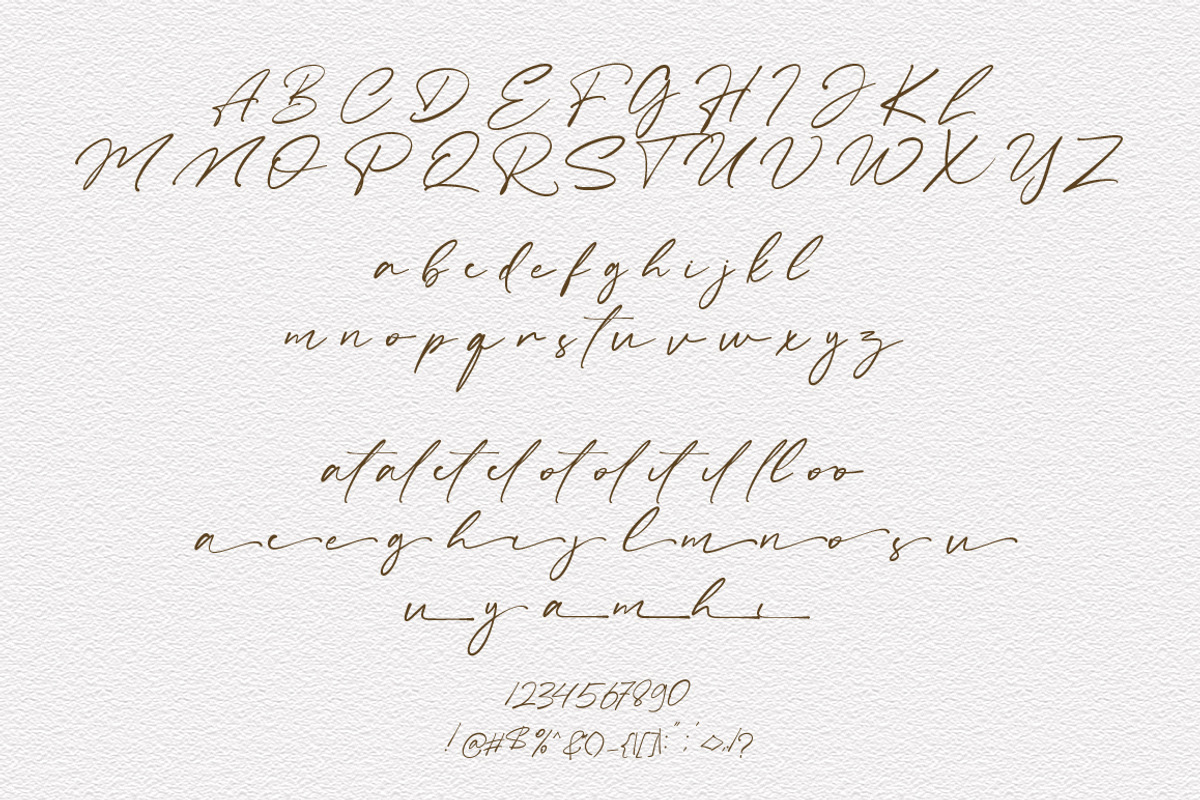 A B C D E F G H I J K L
M N O P Q R S T U V W X Y Z
a b c d e f g h i j k l
m n o p q r s t u v w x y z
at al et el ot ol it il ll oo
a c e g h i j l m n o s u
u y a m h i
1234567890
! @ # $ % ^ & * ( ) _ - { } [ ] | : " ; ' < > , . / ?